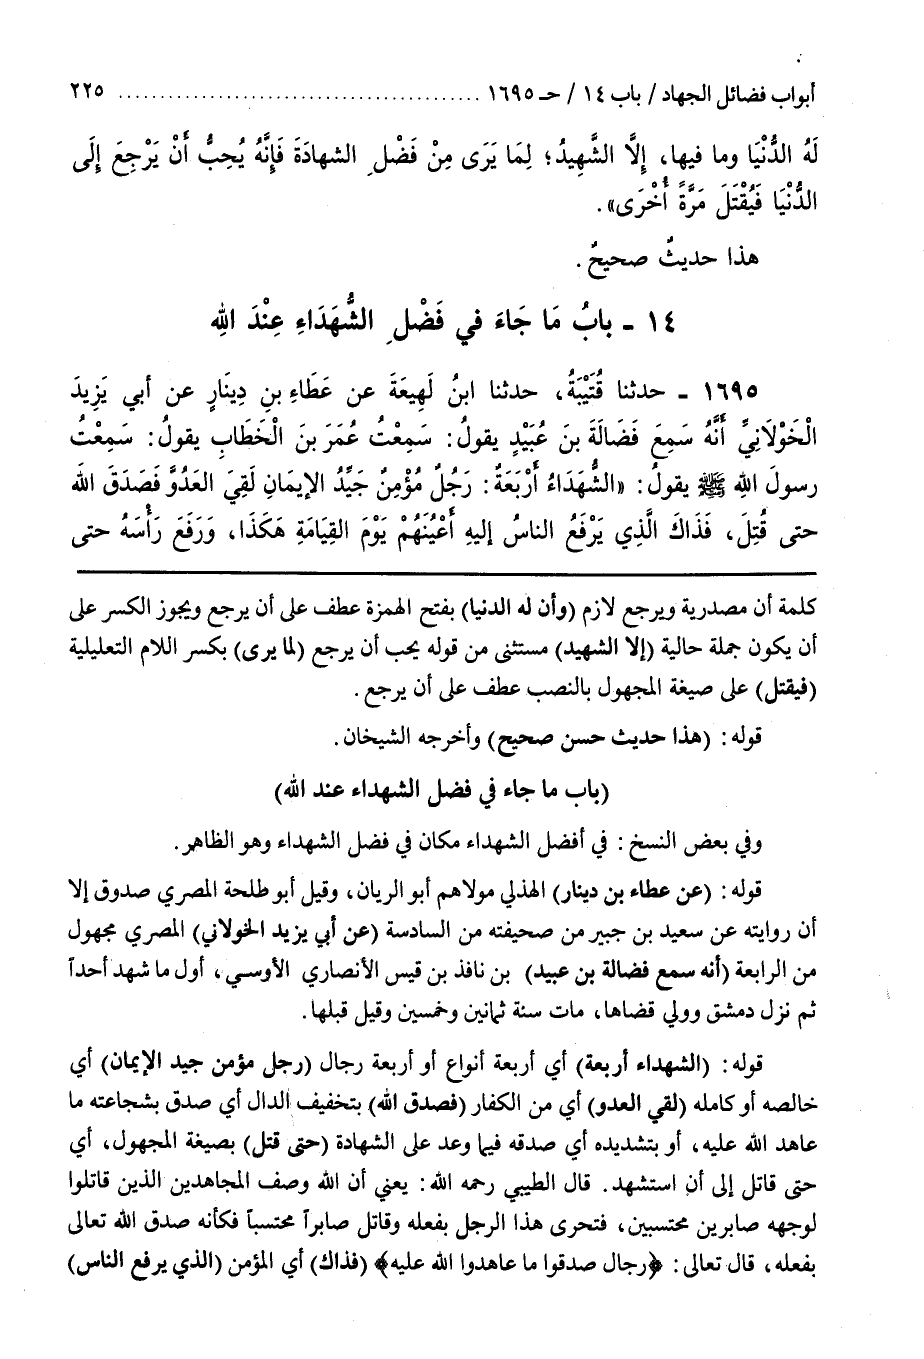 أبواب فضائل الجهاد / باب ١٤ / حـ ١٦٩٥ ........................................... ٢٢٥
لَهُ الدُّنْيَا وما فيها، إِلَّا الشَّهِيدُ؛ لِمَا يَرَى مِنْ فَضْلِ الشهادَةَ فَإِنَّهُ يُحِبُّ أَنْ يَرْجِعَ إِلَى
الدُّنْيَا فَيُقْتَلَ مَرَّةً أُخْرَى».
هذا حديثٌ صحيحٌ.
١٤ - بابُ مَا جَاءَ في فَضْلِ الشُّهَدَاءِ عِنْدَ اللهِ
١٦٩٥ - حدثنا قُتَيْبَةُ، حدثنا ابنُ لَهِيعَةَ عن عَطَاءِ بنِ دِينَارٍ عن أبي يَزِيدَ
الْخَوْلَانِيِّ أَنَّهُ سَمِعَ فَضَالَةَ بنَ عُبَيْدٍ يقولُ: سَمِعْتُ عُمَرَ بنَ الْخَطَابِ يقولُ: سَمِعْتُ
رسولَ اللهِ ﷺ يقولُ: «الشُّهَدَاءُ أَرْبَعَةٌ: رَجُلٌ مُؤْمِنٌ جَيِّدُ الإيمَانِ لَقِيَ العَدُوَّ فَصَدَقَ اللهَ
حتى قُتِلَ، فَذَاكَ الَّذِي يَرْفَعُ الناسُ إليهِ أَعْيُنَهُمْ يَوْمَ القِيَامَةِ هَكَذَا، وَرَفَعَ رَأْسَهُ حتى
كلمة أن مصدرية ويرجع لازم (وأن له الدنيا) بفتح الهمزة عطف على أن يرجع ويجوز الكسر على
أن يكون جملة حالية (إلا الشهيد) مستثنى من قوله يحب أن يرجع (لما يرى) بكسر اللام التعليلية
(فيقتل) على صيغة المجهول بالنصب عطف على أن يرجع.
قوله: (هذا حديث حسن صحيح) وأخرجه الشيخان.
(باب ما جاء في فضل الشهداء عند الله)
وفي بعض النسخ: في أفضل الشهداء مكان في فضل الشهداء وهو الظاهر.
قوله: (عن عطاء بن دينار) الهذلي مولاهم أبو الريان، وقيل أبو طلحة المصري صدوق إلا
أن روايته عن سعيد بن جبير من صحيفته من السادسة (عن أبي يزيد الخولاني) المصري مجهول
من الرابعة (أنه سمع فضالة بن عبيد) بن نافذ بن قيس الأنصاري الأوسي، أول ما شهد أحداً
ثم نزل دمشق وولي قضاها، مات سنة ثمانين وخمسين وقيل قبلها.
قوله: (الشهداء أربعة) أي أربعة أنواع أو أربعة رجال (رجل مؤمن جيد الإيمان) أي
خالصه أو كامله (لقي العدو) أي من الكفار (فصدق الله) بتخفيف الدال أي صدق بشجاعته ما
عاهد الله عليه، أو بتشديده أي صدقه فيما وعد على الشهادة (حتى قتل) بصيغة المجهول، أي
حتى قاتل إلى أن استشهد. قال الطيبي رحمه الله: يعني أن الله وصف المجاهدين الذين قاتلوا
لوجهه صابرين محتسبين، فتحرى هذا الرجل بفعله وقاتل صابراً محتسباً فكأنه صدق الله تعالى
بفعله، قال تعالى: ﴿رجال صدقوا ما عاهدوا الله عليه﴾ (فذاك) أي المؤمن (الذي يرفع الناس)